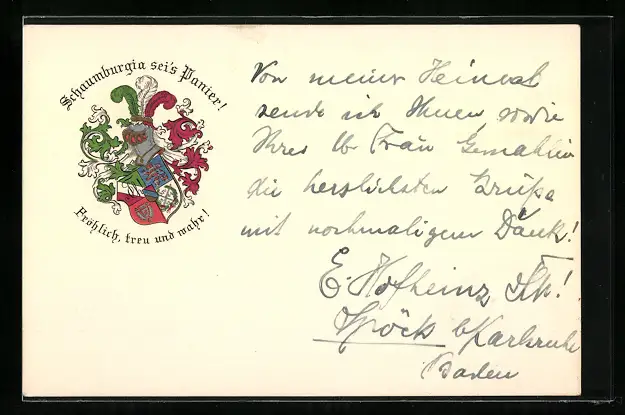 Schaumburgia sei's Panier!
Fröhlich, treu und wahr!
Von meiner Heimat
sende ich Ihnen, sowie
Ihrer lb. Frau Gemahlin
die herzlichsten Grüße
mit nochmaligem Dank!
E. Hofheinz
Spöck b/Karlsruhe
Baden